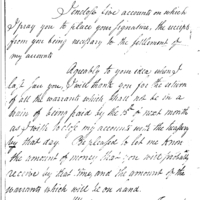 I inclose two accounts on which
I pray you to place your signature, the receipt
from you being necessary to the settlement of
my accounts
Agreeably to your idea when I
last saw you, I will thank you for the return
of all the warrants which shall not be in a
train of being paid by the 15th of next month
as I wish to close my accounts with the
by that day. Be pleased to let me know
the amount of money that you will probably
receive by that time, and the amount of the
warrants which will be on hand.